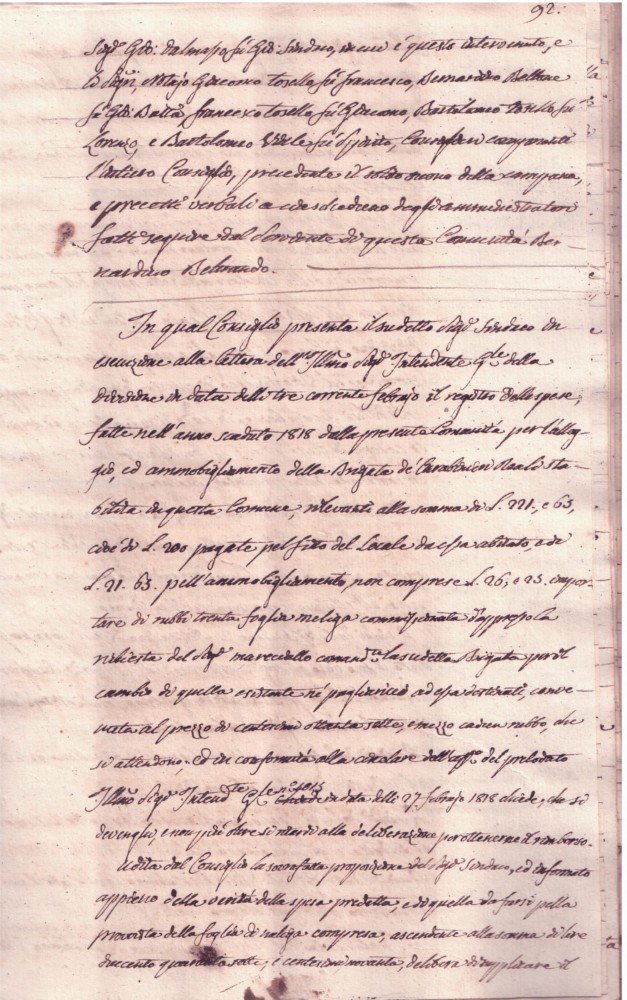 92.
Sig.r Gio: dalmazzo fù Gio: Sindaco, in cui è questo intervenuto, e
li Sig.ri Notajo Giacomo tosello fù francesco, Bernardo Bellone
fù Gio: Batta, francesco tosello fù Giacomo, Bartolomeo tosello fù
Lorenzo, e Bartolomeo Viale fù Spirito, Consiglieri componenti
l'Intiero Consiglio, precedente il solito suono della campana,
e precetti verbali a ciascheduno degli amministratori
fatti seguire dal Serviente di questa Comunità Ber-
nardino Beltrando.
In qual Consiglio presenta il sudetto Sig.r Sindaco in
esecuzione alla lettera dell'Ill.mo Sig.r Intendente G.le della
divisione in data delli tre corrente febrajo il registro delle spese,
fatte nell'anno scaduto 1818 dalla presente Comunità per l'allog-
gio, ed ammobigliamento della Brigata de' Carabinieri Reali sta-
bilita in questa Comune, rilevanti alla somma di L. 221, e 63,
cioè di L. 200 pagate pel fitto del Locale da essa abitato, e di
L. 21. 63. pell'ammobigliamento, non comprese L. 26, e 25. impor-
tare di rubbi trenta foglia meliga commissionata d'appresso la
richiesta del Sig.r maresciallo comand.te la sudetta Brigata per il
cambio di quella esistente né pagliaricci ad essa destinati, conve-
nuta al prezzo di centesimi ottanta sette, e mezzo cadun rubbo, che
si attendono, ed in conformità alla circolare dell'uff.o del prelodato
Ill.mo Sig.r Intend.te G.le in data delli 27 febrajo 1818 chiede, che si
devenghi, e non più oltre si ritardi alla deliberazione per ottenerne il rimborso.
Udita dal Consiglio la sovrafatta proposizione del Sig.r Sindaco, ed informato
appieno della verità della spesa predetta, e di quella da farsi pella
provvista della foglia di meliga compresa, ascendente alla somma di lire
duecento quaranta sette, e centesimi novanta, delibera di supplicare il